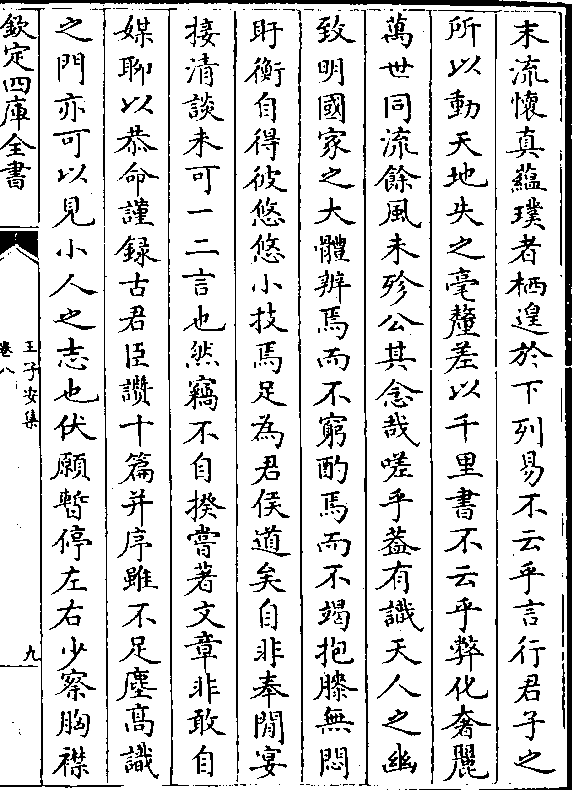 末流懷真蘊璞者栖遑於下列易不云乎言行君子之
所以動天地失之毫釐差以千里書不云乎弊化奢麗
萬世同流餘風未殄公其念哉嗟乎葢有識天人之幽
致明國家之大體辨焉而不窮酌焉而不竭抱膝無悶
盱衡自得彼悠悠小技焉足為君侯道矣自非奉閒宴
接清談未可一二言也然竊不自揆嘗著文章非敢自
媒聊以恭命謹録古君臣讚十篇并序雖不足塵高識
之門亦可以見小人之志也伏願暫停左右少察胸襟
欽定四庫全書
王子安集
卷八
九